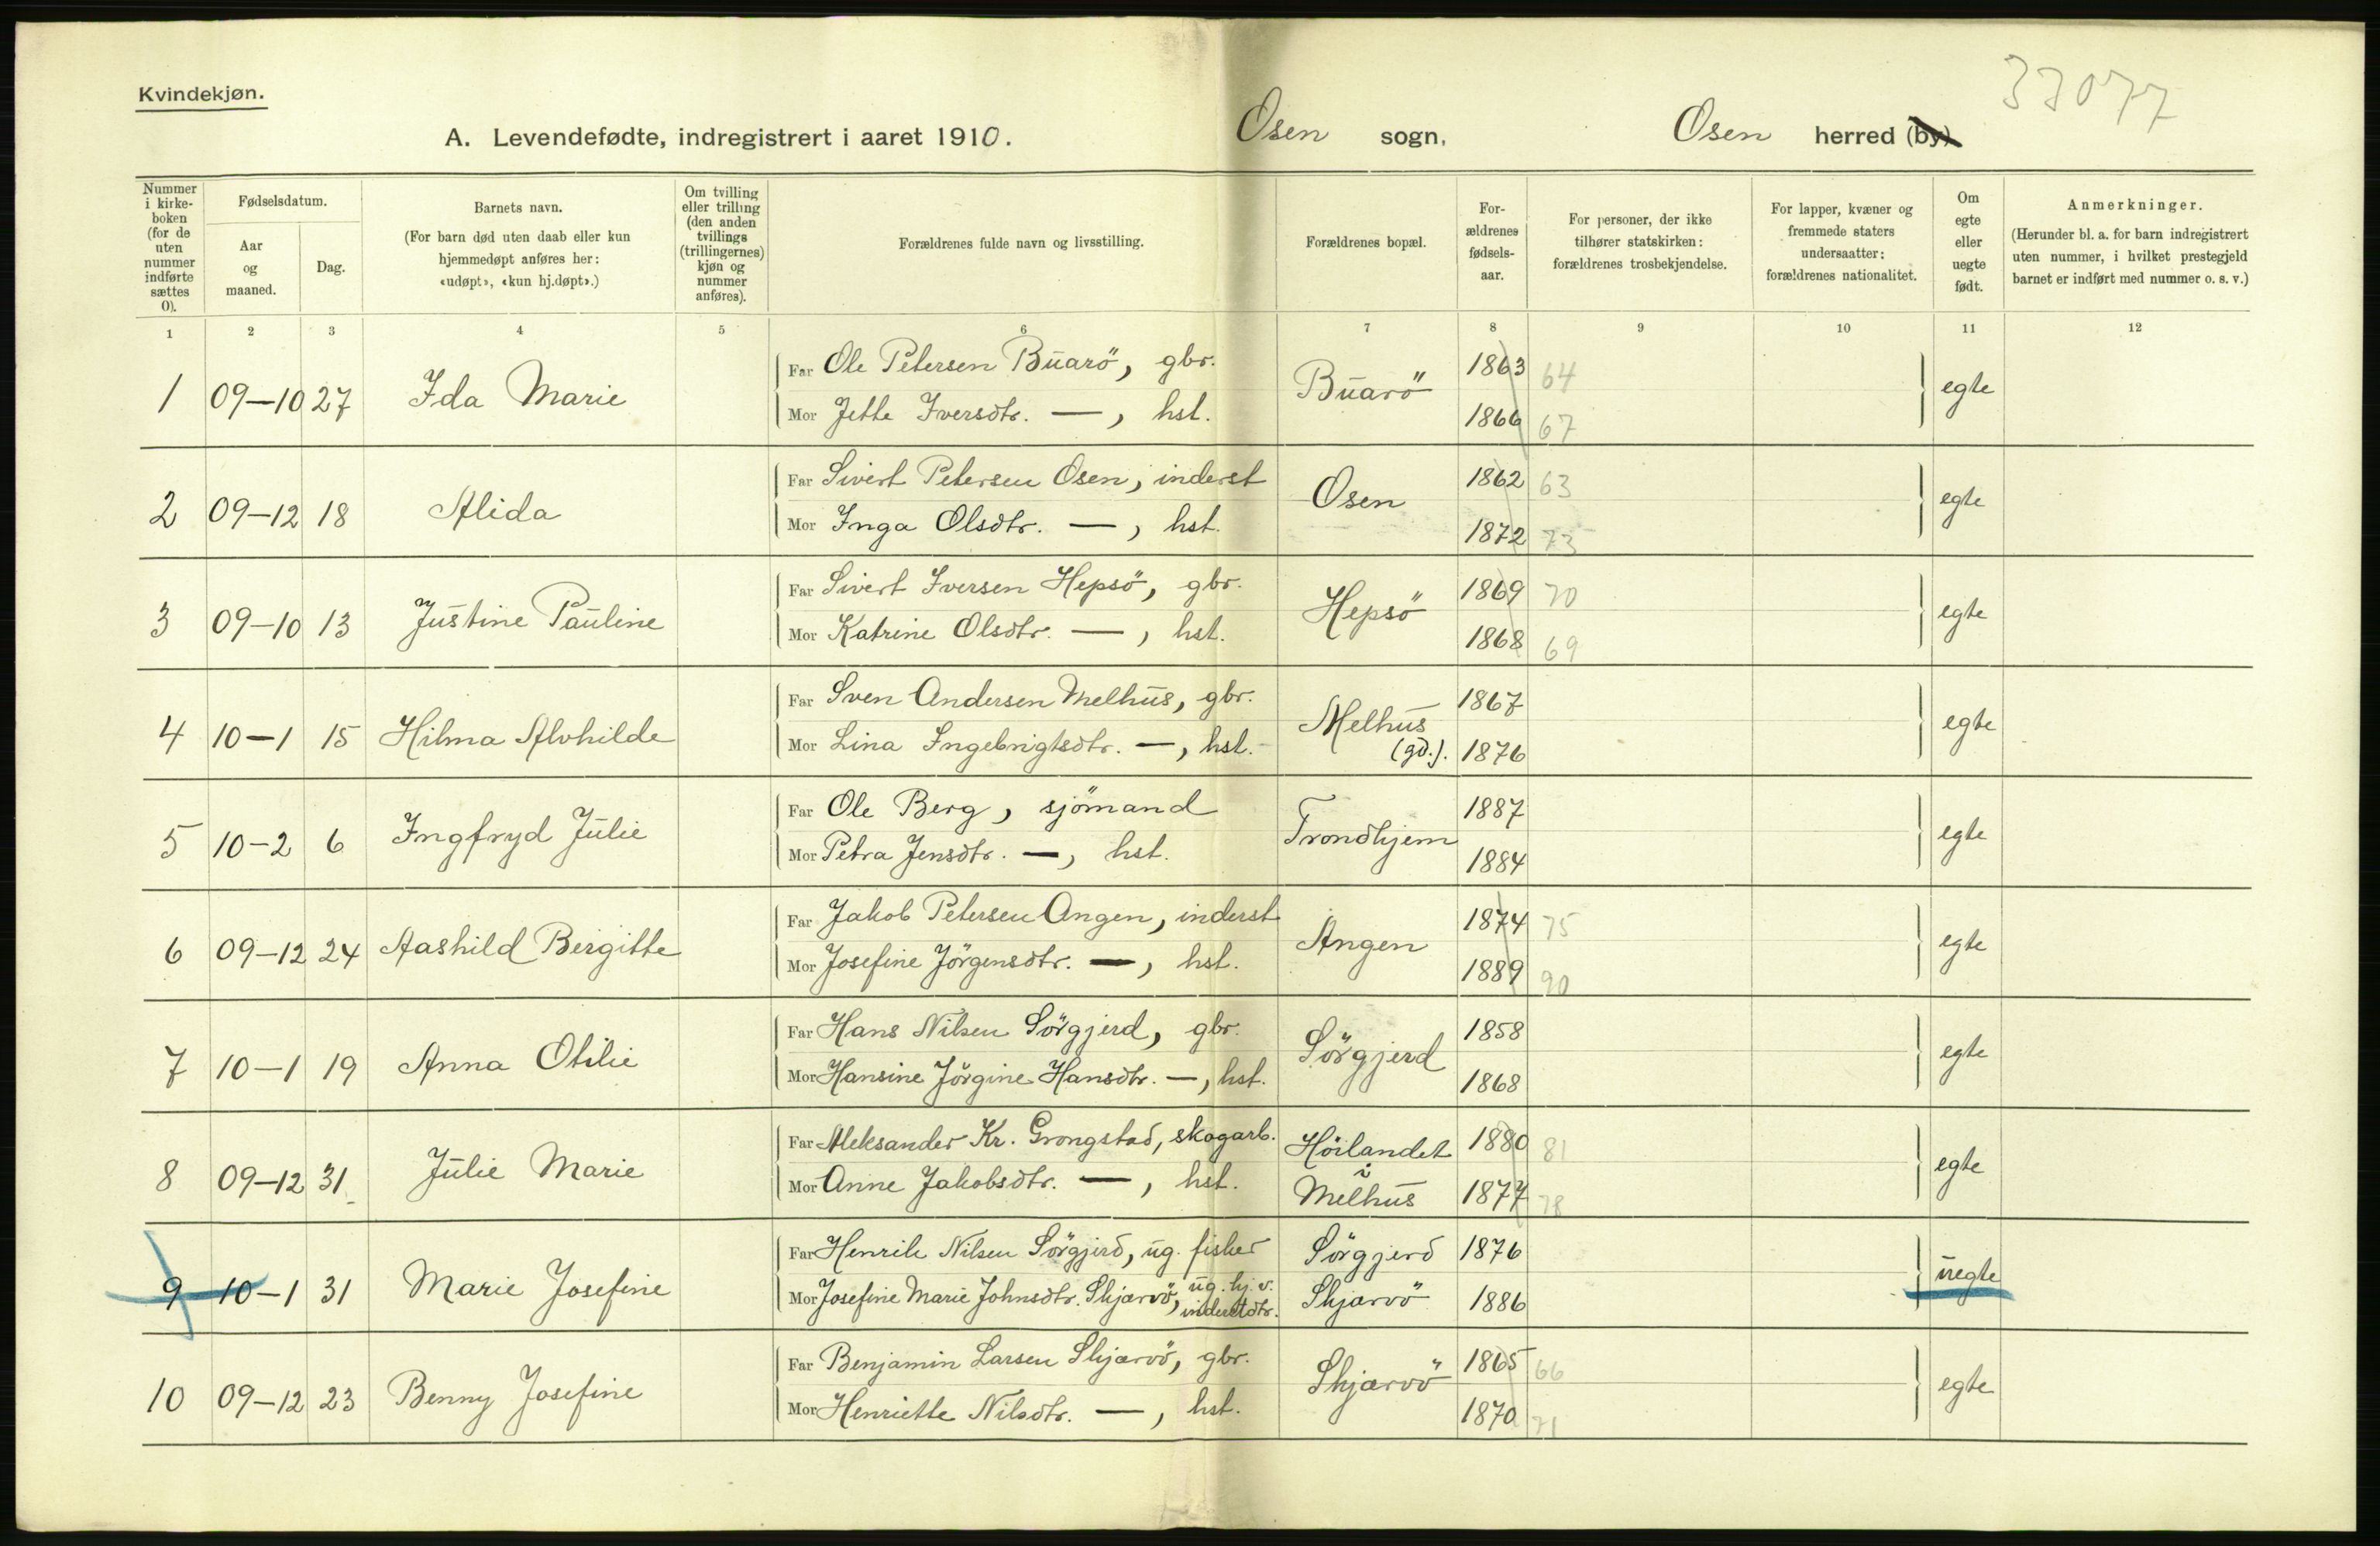 Kvindekjøn.
33077
A. Levendefødte, indregistrert i aaret 1910. Osen sogn, Osen herred (by)
Nummer i kirke-boken (for de uten nummer indførte sættes 0).
Fødselsdatum.
Aar og maaned.
Dag.
Barnets navn.
(For barn død uten daab eller kun hjemmedøpt anføres her: «udøpt», «kun hj.døpt».)
Om tvilling eller trilling (den anden tvillings (trillingernes) kjøn og nummer anføres).
Forældrenes fulde navn og livsstilling.
Forældrenes bopæl.
For-ældrenes fødsels-aar.
For personer, der ikke tilhører statskirken: forældrenes trosbekjendelse.
For lapper, kvæner og fremmede staters undersaatter: forældrenes nationalitet.
Om egte eller uegte født.
Anmerkninger.
(Herunder bl. a. for barn indregistrert uten nummer, i hvilket prestegjeld barnet er indført med nummer o. s. v.)
1 2 3 4 5 6 7 8 9 10 11 12
1 09–10 27 Ida Marie Far Ole Petersen Buarö, gbr. Buarö 1863 64 egte
Mor Jette Iversdtr. —, hst. 1866 67
2 09–12 18 Alida Far Sivert Petersen Osen, inderst Osen 1862 63 egte
Mor Inga Olsdtr. —, hst. 1872 73
3 09–10 13 Justine Pauline Far Sivert Iversen Hepsö, gbr. Hepsö 1869 70 egte
Mor Katrine Olsdtr. —, hst. 1868 69
4 10–1 15 Hilma Alvhilde Far Sven Andersen Melhus, gbr. Melhus 1867 egte
Mor Lina Ingebrigtsdtr. —, hst. (gd.). 1876
5 10–2 6 Ingfryd Julie Far Ole Berg, sjömand Trondhjem 1887 egte
Mor Petra Jensdtr. —, hst. 1884
6 09–12 24 Aashild Bergitte Far Jakob Petersen Angen, inderst Angen 1874 75 egte
Mor Josefine Jörgensdtr. —, hst. 1889 90
7 10–1 19 Anna Otilie Far Hans Nilsen Sörgjerd, gbr. Sörgjerd 1858 egte
Mor Hansine Jörgine Hansdtr. —, hst. 1868
8 09–12 31 Julie Marie Far Aleksander Kr. Grongstad, skogarb. Höilandet 1880 81 egte
Mor Anne Jakobsdtr. —, hst. i Melhus 1877 78
9 10–1 31 Marie Josefine Far Henrik Nilsen Sörgjerd, ug. fisker Sörgjerd 1876 uegte
Mor Josefine Marie Johnsdtr. Skjærvö, ug. hj. v. inderstdtr. Skjærvö 1886
10 09–12 23 Benny Josefine Far Benjamin Larsen Skjærvö, gbr. Skjærvö 1865 66 egte
Mor Henriette Nilsdtr. —, hst. 1870 71